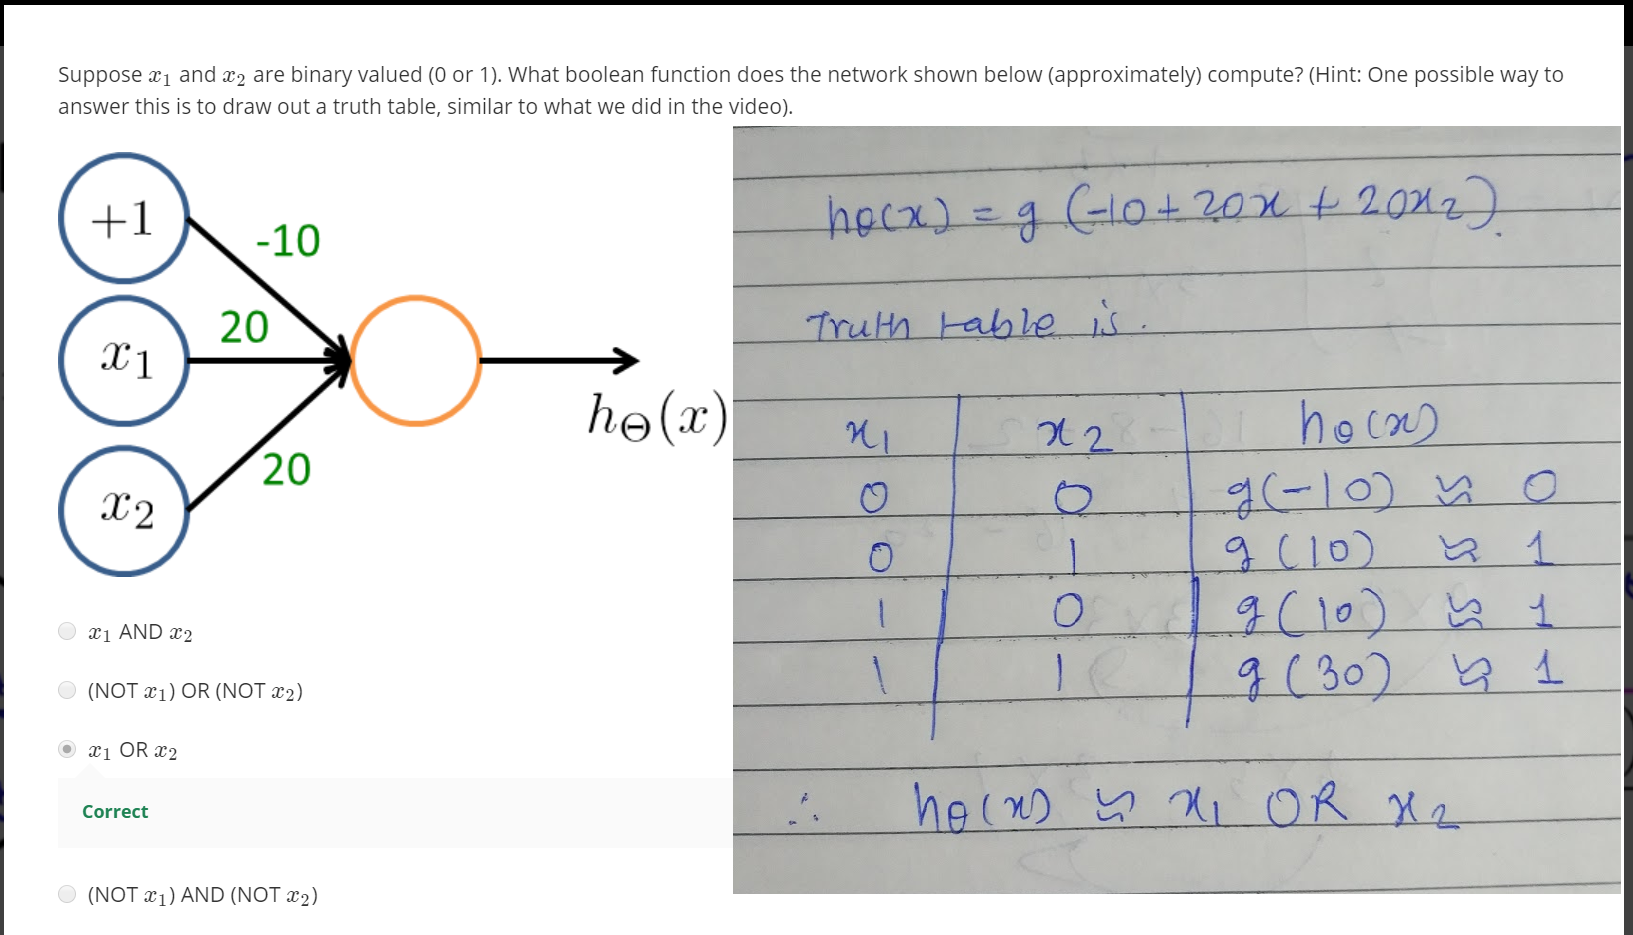 Suppose x1 and x2 are binary valued (0 or 1). What boolean function does the network shown below (approximately) compute? (Hint: One possible way to
answer this is to draw out a truth table, similar to what we did in the video).
+1
-10
x1
20
x2
20
hΘ(x)
x1 AND x2
(NOT x1) OR (NOT x2)
x1 OR x2
Correct
(NOT x1) AND (NOT x2)
hθ(x) = g (-10 + 20x + 20x2).
Truth table is.
x1 x2 hθ(x)
0 0 g(-10) ≈ 0
0 1 g(10) ≈ 1
1 0 g(10) ≈ 1
1 1 g(30) ≈ 1
∴ hθ(x) ≈ x1 OR x2